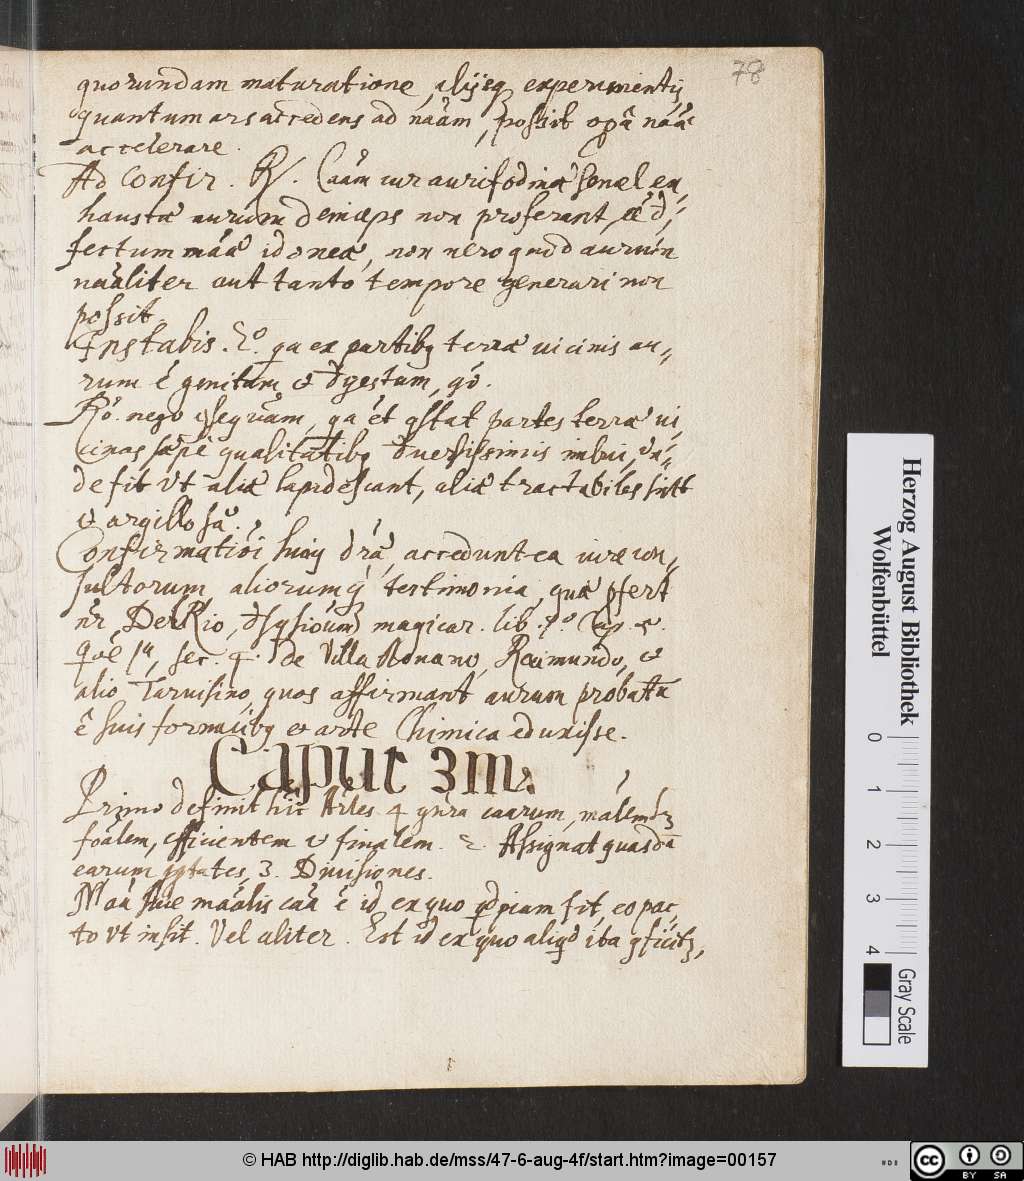 78
quorundam maturatione, alijsq experimentis
quantum ars accedens ad nãam, possit opã nãæ
accelerare.
Ad Confir. R. Caãm cur aurifodinæ semel ex,
haustæ aurum deinceps non proferant, eẽ d,
fectum mãæ idoneæ, non uero quod aurum
nãaliter aut tanto tempore generari non
possit.
Instabis. 2o. qa ex partibq terræ uicinis au,,
rum ẽ genitum et dgestum, go.
Ro. nego 9sequam, qa et 9stat partes terræ ui,
cinas sæpe qualitatibq duersissimis imbui, un,,
de fit ut aliæ lapidescant, aliæ tractabiles sint
et argillosæ.
Confirmatioi huiq dræ, accedunt ea iurecon,,
sultorum, aliorumq testimonia, quæ pfert
nr DelRio, dsqsioũm magicar. lib. 1o Cap. 5.
Qoe 1a, sec. 4. de Villa Nouano, Raimundo, et
alio Taruisino, quos affirmant aurum probatũ
ẽ suis fornacibq et arte Chimica eduxisse.
Caput 3m.
Primo definit hic Ariles 4 gnra caarum, mãlem
foãlem, efficientem et finalem. 2. Assignat quasdã
earum pptates, 3. Diuisiones.
Maã siue mãalis caã ẽ id ex quo qdpiam fit, eo pac,
to ut insit. Vel aliter. Est id ex quo aliqd ita
Herzog August Bibliothek
Wolfenbüttel
0
1
2
3
4
Gray Scale
© HAB http://diglib.hab.de/mss/47-6-aug-4f/start.htm?image=00157
cc
BY SA